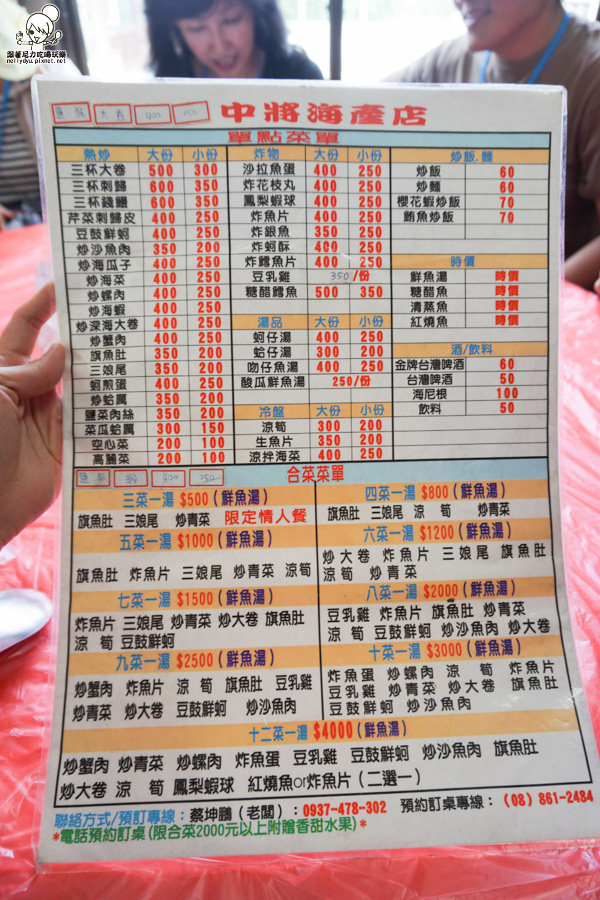 跟著尼力吃喝玩樂
nellydyu.pixnet.net
大卷 400 250
中將海產店
單點菜單
熱炒 大份 小份
三杯大卷 500 300
三杯刺歸 600 350
三杯錢鰻 600 350
芹菜刺歸皮 400 250
豆鼓鮮蚵 400 250
炒沙魚肉 350 200
炒海瓜子 400 250
炒海菜 400 250
炒螺肉 400 250
炒海蝦 400 250
炒深海大卷 400 250
炒蟹肉 400 250
旗魚肚 350 200
三娘尾 350 200
蚵煎蛋 400 250
炒蛤蠣 350 200
鹽菜肉絲 350 200
菜瓜蛤蠣 300 150
空心菜 200 100
高麗菜 200 100
炸物 大份 小份
沙拉魚蛋 400 250
炸花枝丸 400 250
鳳梨蝦球 400 250
炸魚片 400 250
炸銀魚 350 250
炸蚵酥 400 250
炸鱈魚片 400 250
豆乳雞 350 /份
糖醋鱈魚 500 350
湯品 大份 小份
蚵仔湯 400 250
蛤仔湯 300 200
吻仔魚湯 400 250
酸瓜鮮魚湯 250/份
冷盤 大份 小份
涼筍 300 200
生魚片 350 200
涼拌海菜 400 250
炒飯.麵
炒飯 60
炒麵 60
櫻花蝦炒飯 70
鮪魚炒飯 70
時價
鮮魚湯 時價
糖醋魚 時價
清蒸魚 時價
紅燒魚 時價
酒/飲料
金牌台灣啤酒 60
台灣啤酒 50
海尼根 100
飲料 50
400 250
合菜菜單
三菜一湯 $500(鮮魚湯)
旗魚肚 三娘尾 炒青菜 限定情人餐
五菜一湯 $1000(鮮魚湯)
旗魚肚 炸魚片 三娘尾 炒青菜 涼筍
七菜一湯 $1500(鮮魚湯)
炸魚片 三娘尾 炒青菜 炒大卷 旗魚肚
涼 筍 豆鼓鮮蚵
九菜一湯 $2500(鮮魚湯)
炒蟹肉 炸魚片 涼 筍 旗魚肚 豆乳雞
炒青菜 炒大卷 豆鼓鮮蚵 炒沙魚肉
四菜一湯 $800(鮮魚湯)
旗魚肚 三娘尾 涼 筍 炒青菜
六菜一湯 $1200(鮮魚湯)
炒大卷 炸魚片 三娘尾 旗魚肚
涼筍 炒青菜
八菜一湯 $2000(鮮魚湯)
豆乳雞 炸魚片 旗魚肚 炒青菜
涼 筍 豆鼓鮮蚵 炒沙魚肉 炒大卷
十菜一湯 $3000(鮮魚湯)
炸魚蛋 炒螺肉 涼 筍 炸魚片
豆乳雞 炒青菜 炒大卷 旗魚肚
豆鼓鮮蚵 炒沙魚肉
十二菜一湯 $4000(鮮魚湯)
炒蟹肉 炒青菜 炒螺肉 炸魚蛋 豆乳雞 豆鼓鮮蚵 炒沙魚肉 旗魚肚
炒大卷 涼 筍 鳳梨蝦球 紅燒魚or炸魚片(二選一)
聯絡方式/預訂專線：蔡坤鵬(老闆)：0937-478-302 預約訂桌專線：(08)861-2484
*電話預約訂桌(限合菜2000元以上附贈香甜水果)*